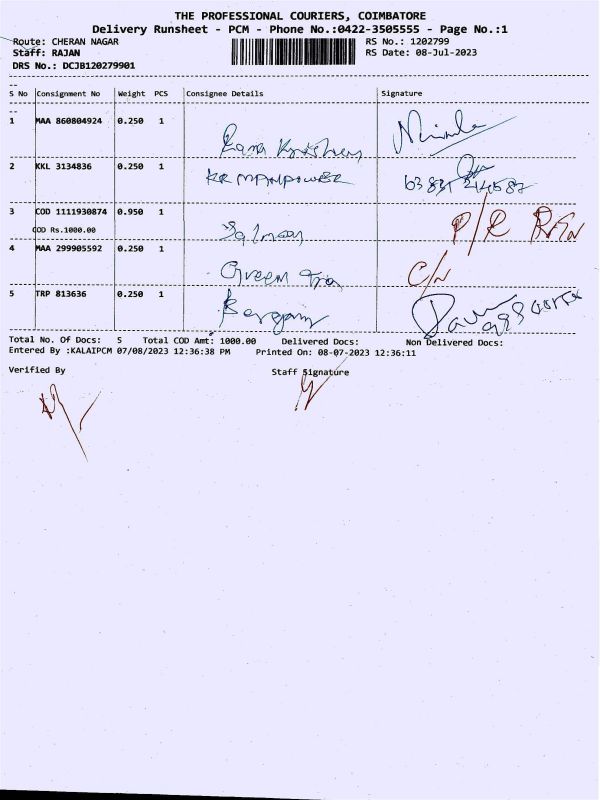 THE PROFESSIONAL COURIERS, COIMBATORE
Delivery Runsheet - PCM - Phone No.:0422-3505555 - Page No.:1
Route: CHERAN NAGAR RS No.: 1202799
Staff: RAJAN RS Date: 08-Jul-2023
DRS No.: DCJB120279901
S No Consignment No Weight PCS Consignee Details Signature
1 MAA 860804924 0.250 1
Rama Krishnan
2 KKL 3134836 0.250 1
KR MANPOWER
3 COD 1111930874 0.950 1 P/R
COD Rs.1000.00 Salman
4 MAA 299905592 0.250 1
Green C/N
5 TRP 813636 0.250 1
Total No. Of Docs: 5 Total COD Amt: 1000.00 Delivered Docs: Non Delivered Docs:
Entered By :KALAIPCM 07/08/2023 12:36:38 PM Printed On: 08-07-2023 12:36:11
Verified By Staff Signature